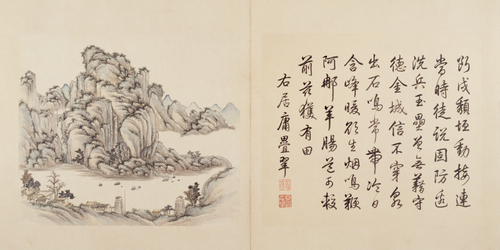 斷戍頹垣動接連
當時徒說固防邊
洗兵玉壘曾無藉守
德金城信不穿泉
出石鳴常帶冷日
含峰暖欲生烟鳴鞭
阿那羊腸道可較
前茲獲有田
右居庸疊翠